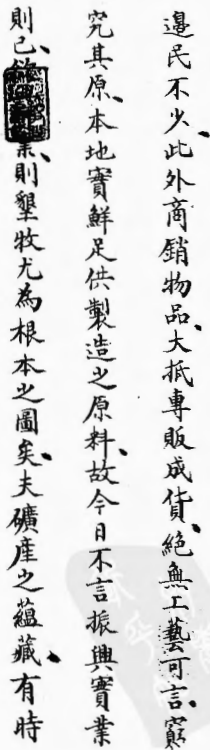 邊民不少、此外商銷物品、大抵專販成貨、絕無工藝可言、窮
究其原、本地實鮮足供製造之原料、故今日不言振興實業
則已、業、則墾牧尤為根本之圖矣、夫礦產之蘊藏、有時